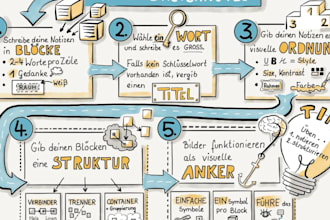 1.
Schreibe deine Notizen
in BLÖCKE
2-4 Worte pro Zeile
1 Gedanke
weiß
RAUM
2.
Wähle ein WORT
und schreibe es GROSS.
Falls kein Schlüsselwort
vorhanden ist, vergib
einen
TITEL
3.
Gib deinen Notizen
visuelle ORDNUN
Style
Size, Kontrast
Rahmen
Farbe
4.
Gib deinen Blöcken
eine STRUKTUR
VERBINDER
TRENNER
CONTAINER
Gruppierung
5.
Bilder funktionieren
als visuelle
ANKER
EINFACHE
Symbole
EIN Symbol
pro Block
FÜHRE des
TI
Üben,